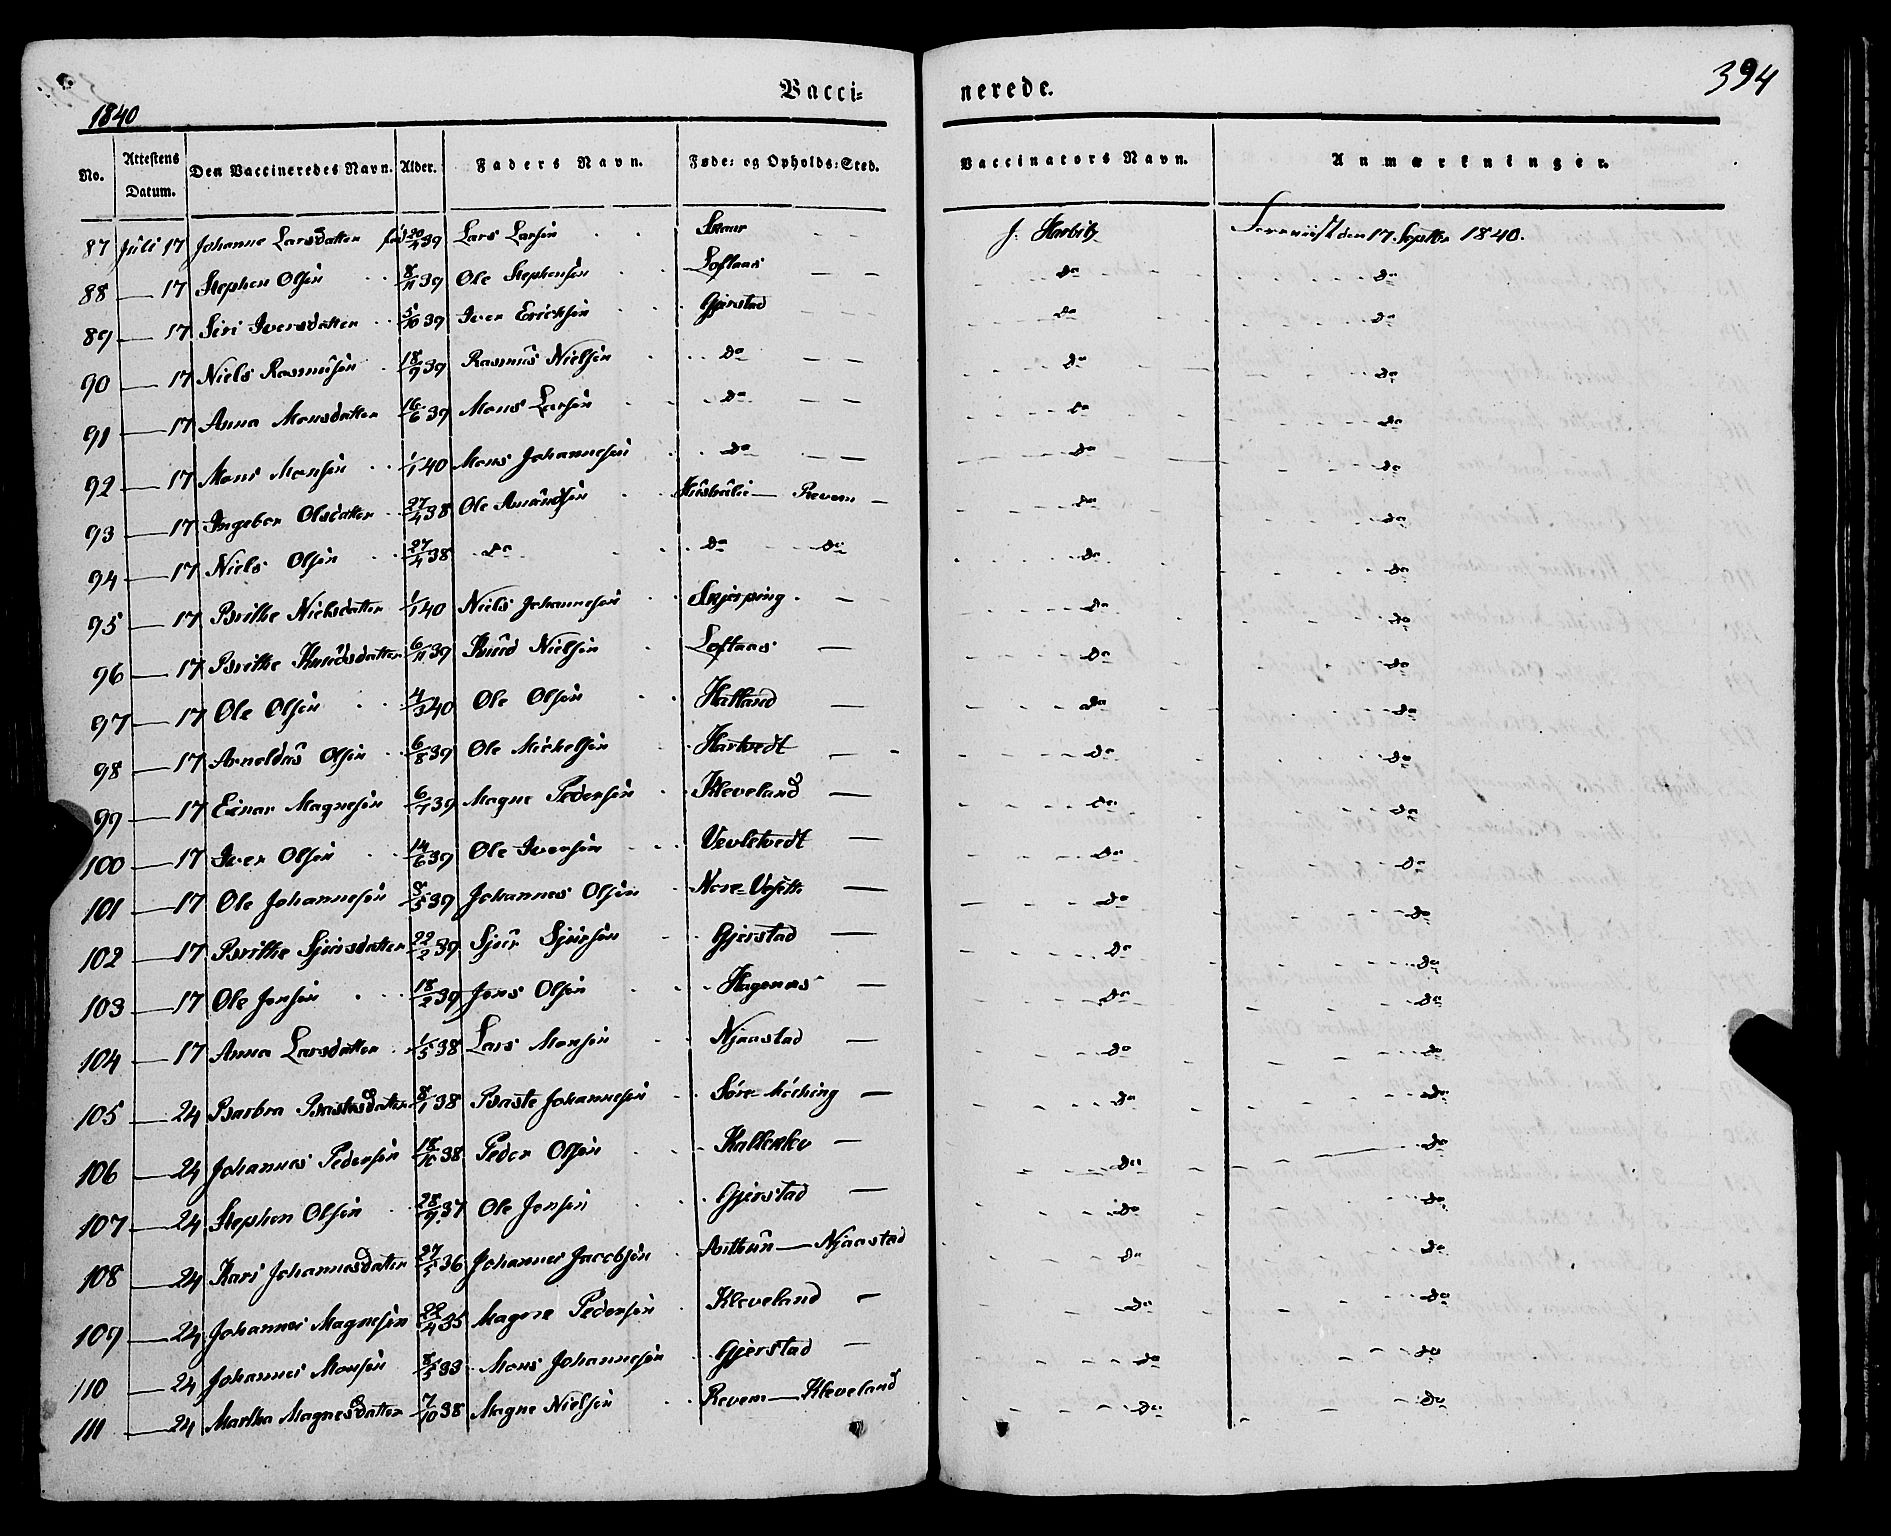 394
Vacci=nerede.
1840
No. Attestens Datum. Den Vaccineredes Navn. Alder. Faders Navn. Føde= og Opholds=Sted. Vaccinators Navn. Anmærkninger.
87 Juli 17 Johanne Larsdatter 20/4 39 Lars Larsen Skaar J. Harbitz den 17 Septbr 1840.
88 — 17 Stephen Olsen 8/11 39 Ole Stephensen Loftaas — — do do
89 — 17 Siri Iversdatter 5/10 39 Iver Erichsen Gjerstad do do
90 — 17 Niels Rasmusen 18/9 39 Rasmus Nielsen do — — do do
91 — 17 Anna Monsdatter 16/6 39 Mons Larsen do — — do do
92 — 17 Mons Monsen 1/1 40 Mons Johannesen do — — do do
93 — 17 Ingebor Olsdatter 27/4 38 Ole Amundsen — Revem — do do
94 — 17 Niels Olsen 27/4 38 do do do do do
95 — 17 Brithe Nielsdatter 1/1 40 Niels Johannesen Skjerping — do do
96 — 17 Brithe Knudsdatter 6/11 39 Knud Nielsen Loftaas — do do
97 — 17 Ole Olsen 4/3 40 Ole Olsen Halland — do do
98 — 17 Arnoldus Olsen 6/8 39 Ole Michelsen Hartvedt — do do
99 — 17 Einar Magnesen 6/7 39 Magne Pedersen Kleveland — do do
100 — 17 Iver Olsen 14/6 39 Ole Iversen Vevletvedt — do do
101 — 17 Ole Johannesen 8/5 39 Johannes Olsen — do do
102 — 17 Brithe Sjursdatter 22/2 39 Sjur Sjursen Gjerstad — do do
103 — 17 Ole Jonsen 18/2 39 Jons Olsen Hagenes — do do
104 — 17 Anna Larsdatter 1/5 38 Lars Monsen Njaastad — do do
105 — 24 Barbra Bastesdatter 8/1 38 Baste Johannesen — do do
106 — 24 Johannes Pedersen 18/10 38 Peder Olsen — do do
107 — 24 Stephen Olsen 28/9 37 Ole Jonsen Gjerstad — do do
108 — 24 Kari Johannesdatter 27/5 36 Johannes Jacobsen — Njaastad do do
109 — 24 Johannes Magnesen 22/4 35 Magne Pedersen Kleveland — do do
110 — 24 Johannes Monsen 8/5 33 Mons Johannesen Gjerstad — do do
111 — 24 Martha Magnesdatter 7/10 38 Magne Nielsen Revem — Kleveland do do